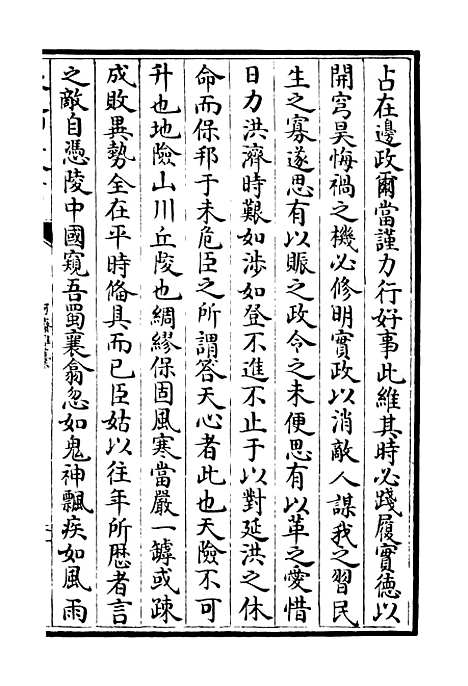 占在邊政爾當謹力行好事此維其時必踐履實德以
開穹昊悔禍之機必修明實政以消敵人謀我之習民
生之寡遂思有以賑之政令之未便思有以革之愛惜
日力洪濟時艱如涉如登不進不止于以對延洪之休
命而保邦于未危臣之所謂答天心者此也天險不可
升也地險山川丘陵也綢繆保固風寒當嚴一罅或疎
成敗異勢全在平時備具而已臣姑以往年所歴者言
之敵自憑陵中國窺吾蜀襄翕忽如鬼神飄疾如風雨